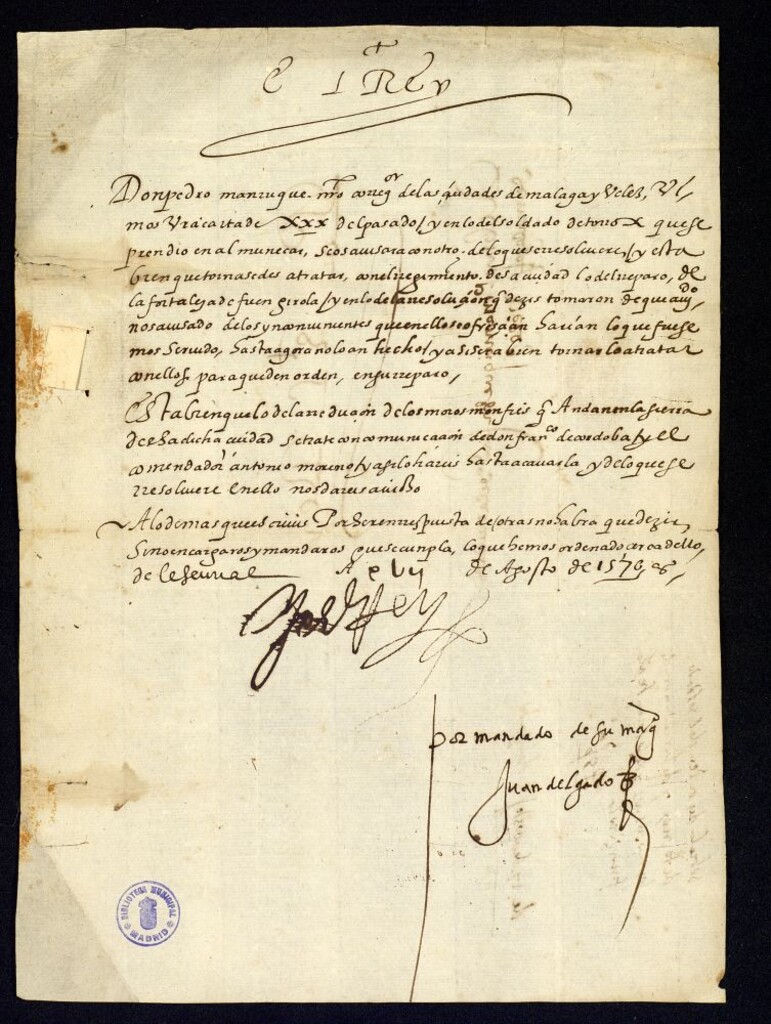 El Rey
Don pedro manrique. nro correg.or de las çiudades de malaga y Velez, Vi
mos vra carta de xxx del pasado / y en lo del soldado de que se
prendio en almuñecar, se os auisara con otro. de lo que se rresoluiere, / y esta
bien que tornasedes a tratar, con el regimiento. desa ciudad lo del rreparo, de
la fortaleza de fuengirola / y en lo de la rresoluçión q dezis tomaron de que auiendo
nos auisado de los ynconuinientes que en ello se ofresçian harian lo que fuese
mos seruido, hasta agora no lo an hecho / y asi sera bien tornarlo a tratar
con ellos. para que den orden, en su rreparo,
Esta bien que lo de la rreduçion de los moros monfies q Andan en la sierra
de esa dicha ciudad se trate con comunicaçion de don fran.co de cordoba / y el
comendador antonio moreno / y asi lo hareis hasta acauarla y de lo que se
rresoluiere en ello nos dareis auiso
A lo demas que escriuis Por ser en rrespuesta de otras no habra que dezir
sino encargaros y mandaros que se cunpla, lo que hemos ordenado cerca dello,
de A xvij de Agosto de 1570,
Yo el Rey
por mandado de su mag.d
Juan delgado
BIBLIOTECA MUNICIPAL
MADRID